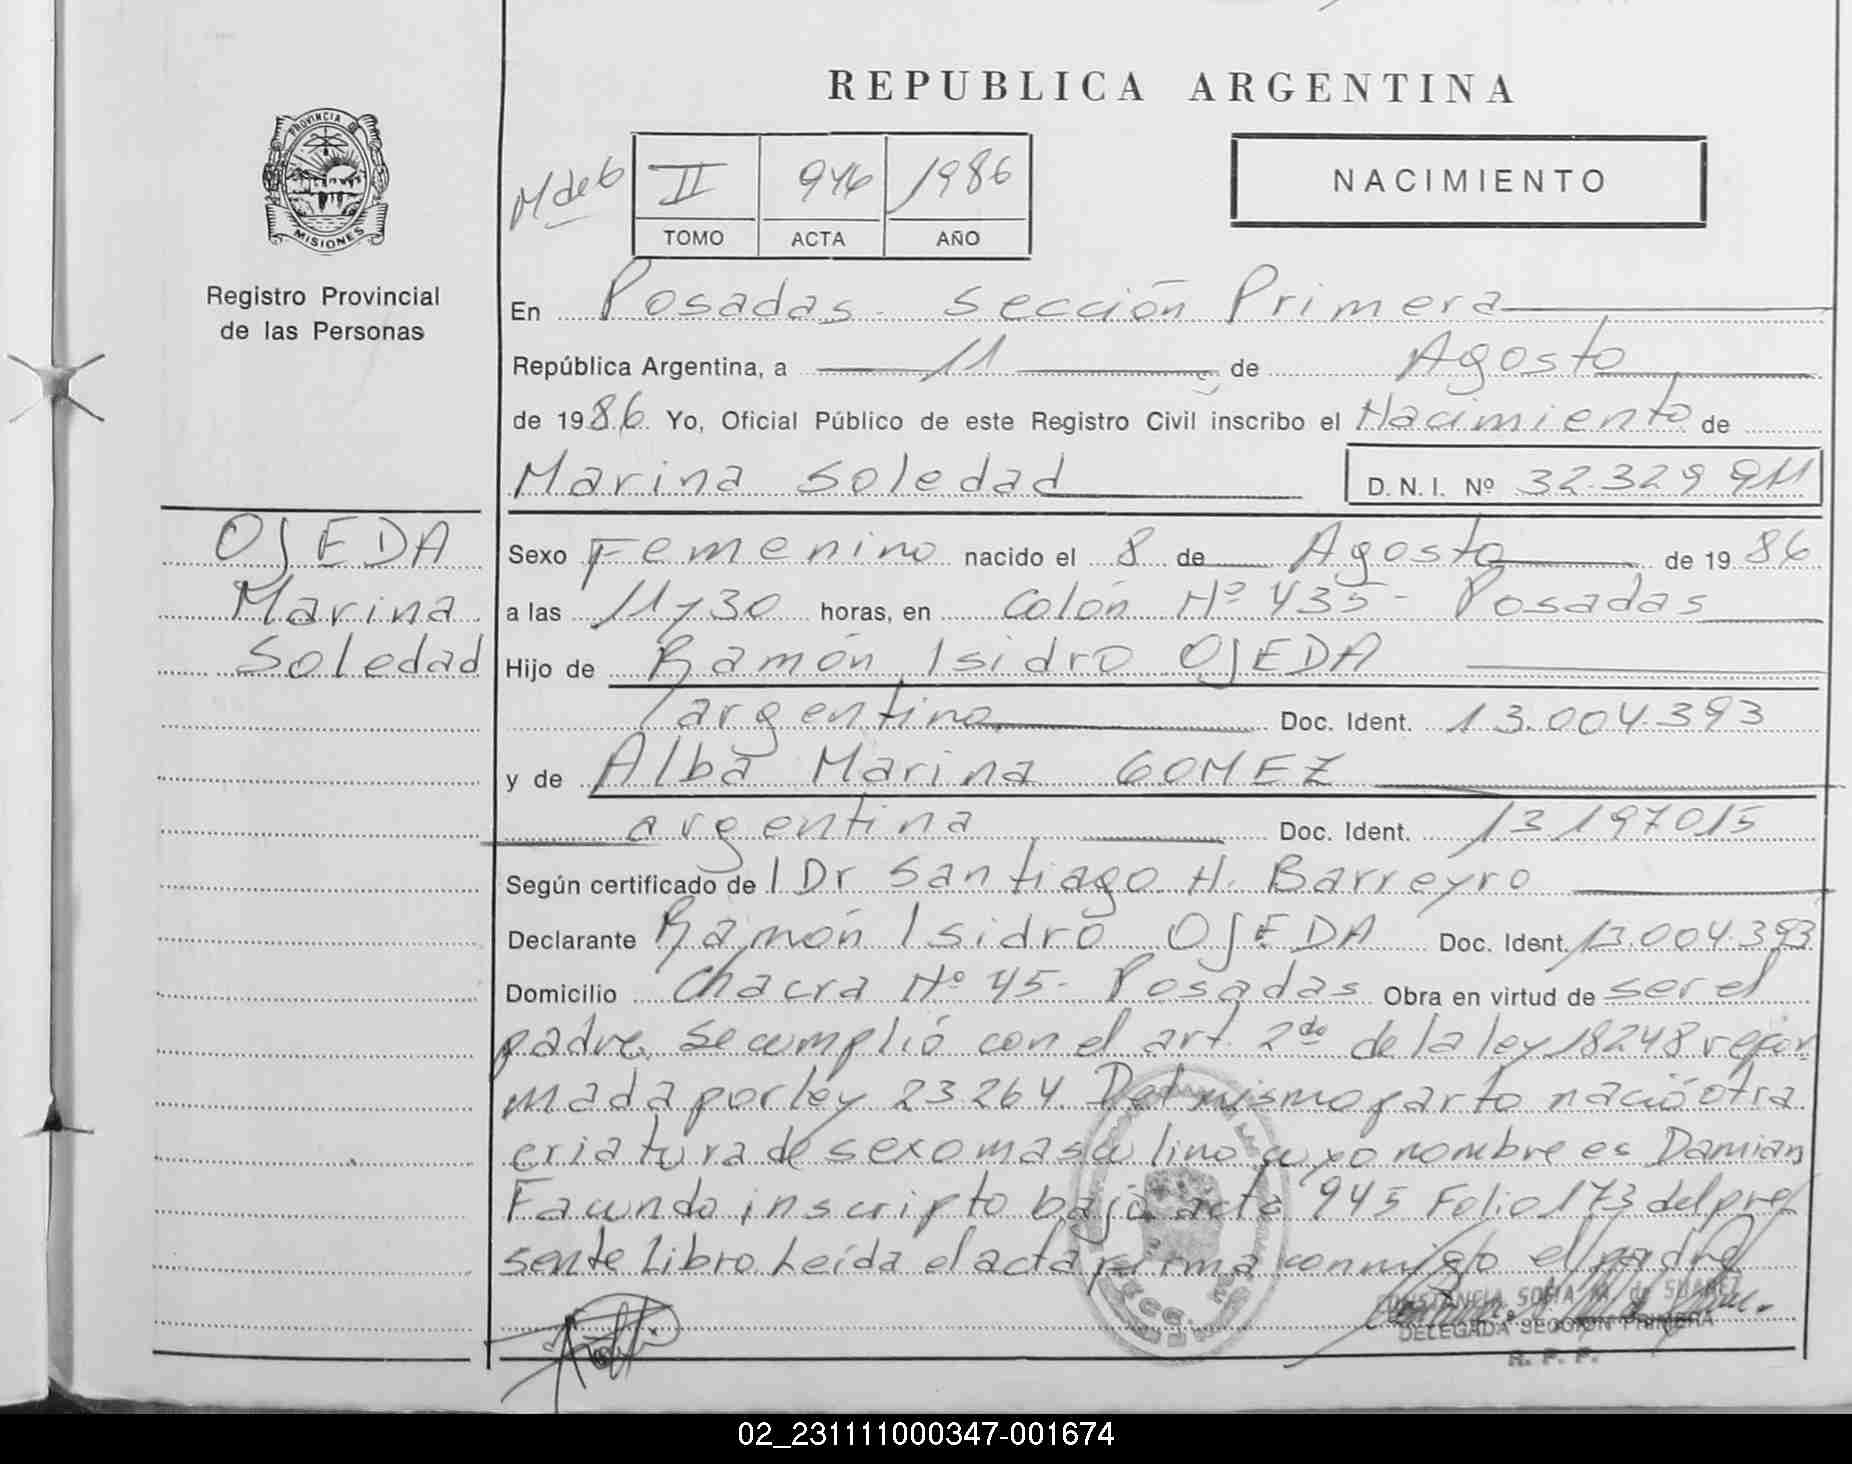 REPUBLICA ARGENTINA
PROVINCIA DE
MISIONES
Registro Provincial
de las Personas
M de G
II 946 1986
TOMO ACTA AÑO
NACIMIENTO
En Posadas - Sección Primera
República Argentina, a 11 de Agosto
de 1986. Yo, Oficial Público de este Registro Civil inscribo el Nacimiento de
Marina Soledad D.N.I. Nº 32.329 911
OJEDA
Marina
Soledad
Sexo Femenino nacido el 8 de Agosto de 19 86
a las 11 y 30 horas, en Colón Nº 435 - Posadas
Hijo de Ramón Isidro OJEDA
argentino Doc. Ident. 13.004.393
y de Alba Marina GOMEZ
argentina Doc. Ident. 13197015
Según certificado de l Dr Santiago H. Barreyro
Declarante Ramón Isidro OJEDA Doc. Ident. 13.004.393
Domicilio Chacra Nº 45 - Posadas Obra en virtud de ser el
padre. Se cumplió con el art. 2do de la ley 18248 refor
mada por ley 23264. Del mismo parto nació otra
criatura de sexo masculino cuyo nombre es Damian
Facundo inscripto bajo acta 945 Folio 173 del pre
sente Libro Leída el acta firma conmigo el padre
CONSTANCIA SOFIA M. de SUAREZ
DELEGADA SECCION PRIMERA
R. P. P.
02_231111000347-001674